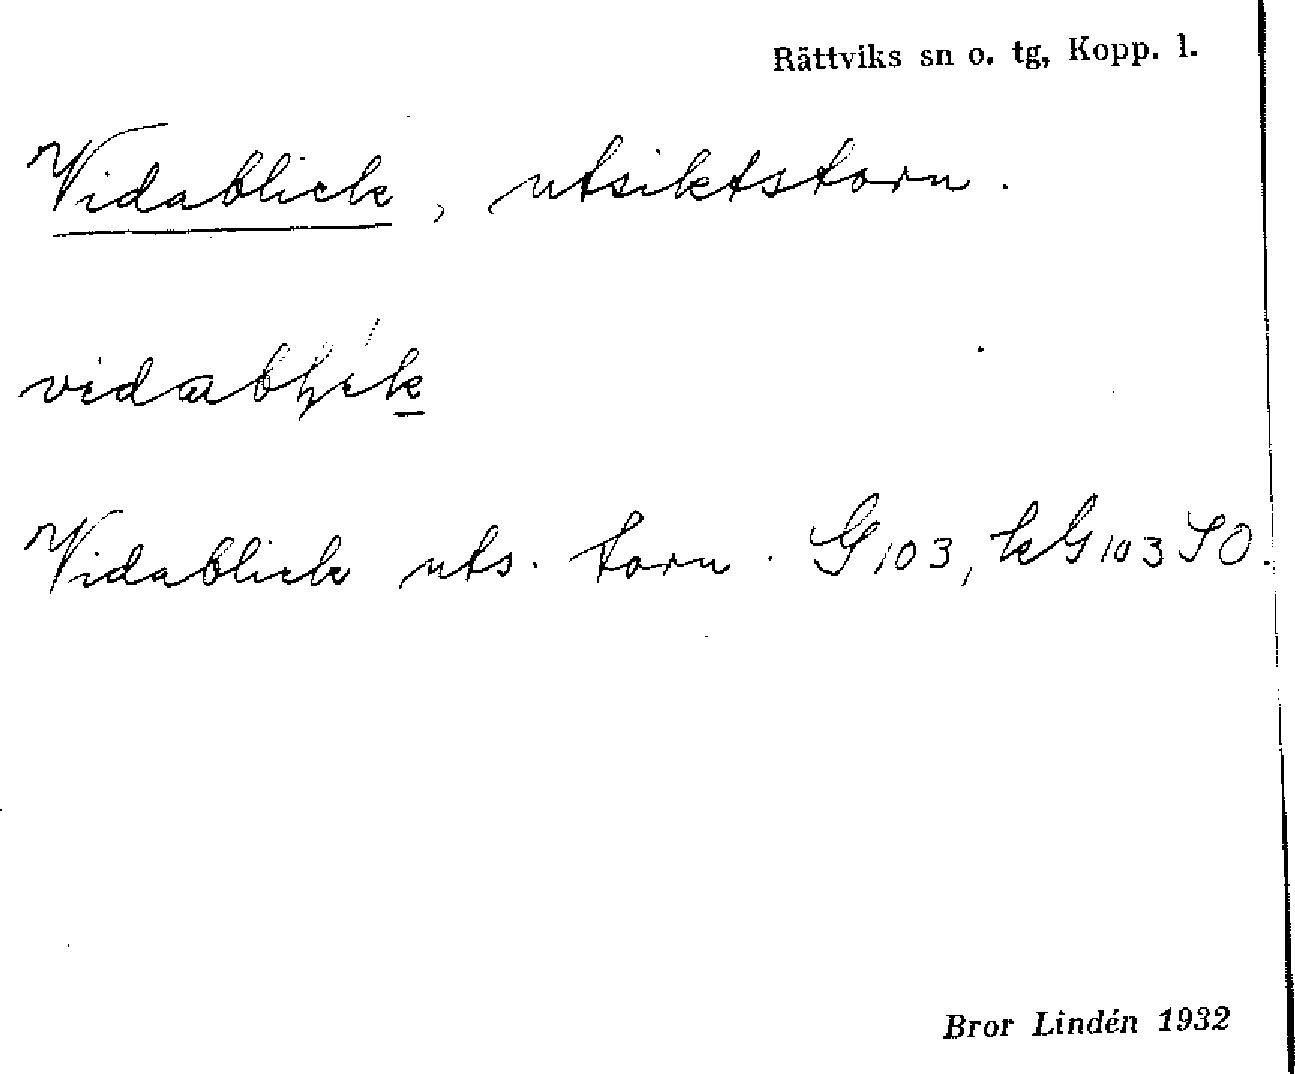 Rättviks sn o. tg, Kopp. l.
Vidablick, utsiktstorn.
vidablik
Vidablick uts. torn. G103, kG103 SO.
Bror Lindén 1932